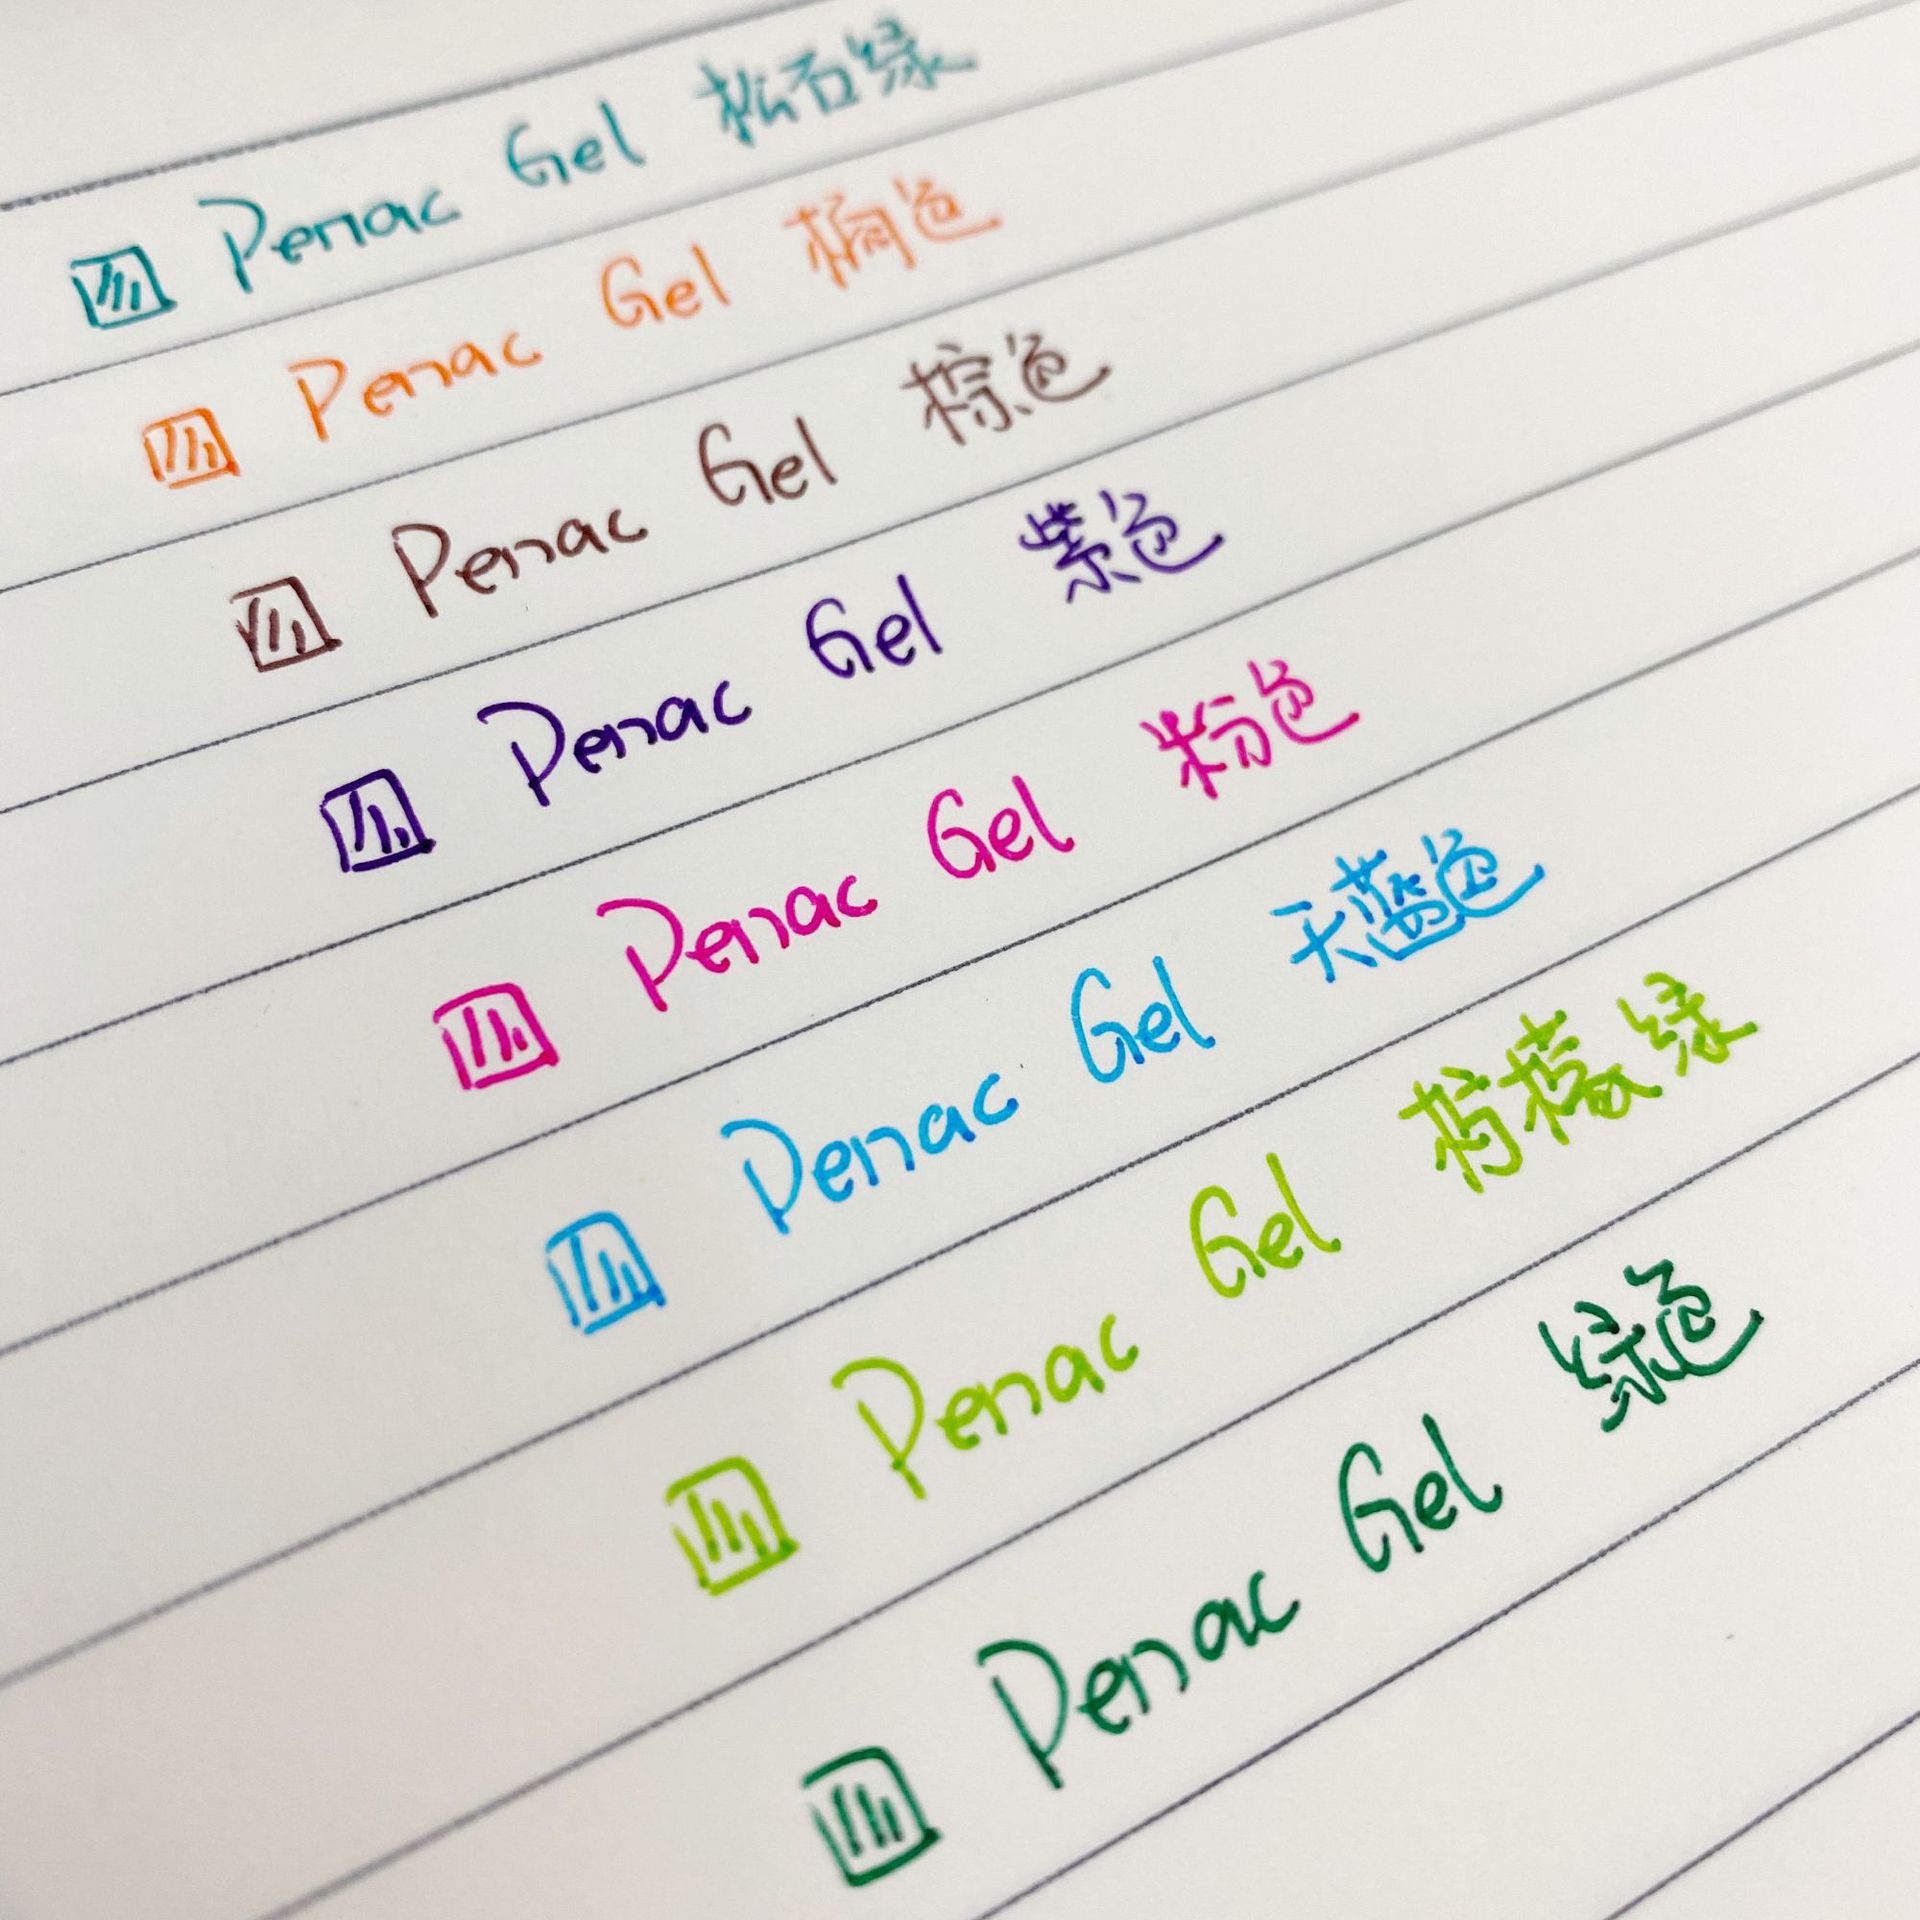 Penac Gel 松石绿
Penac Gel 橘色
Penac Gel 棕色
Penac Gel 紫色
Penac Gel 粉色
Penac Gel 天蓝色
Penac Gel 柠檬绿
Penac Gel 绿色